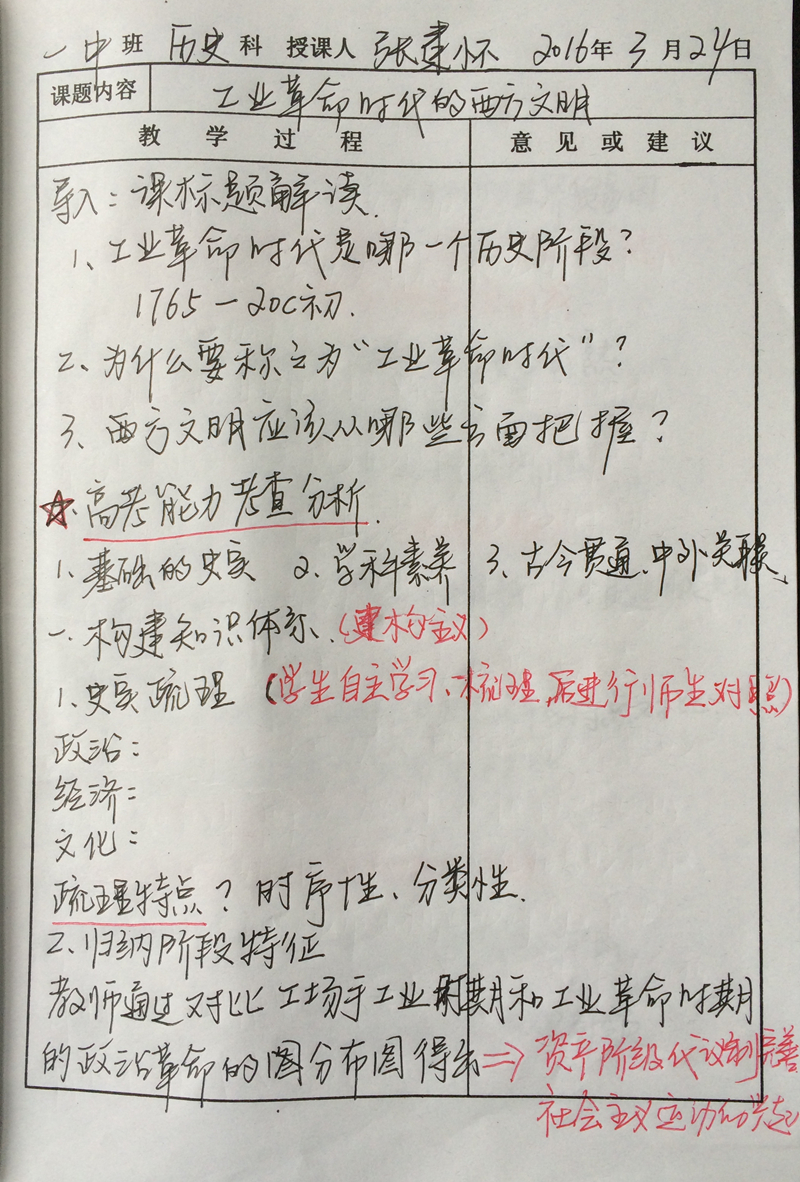 一中班 历史科 授课人 张建怀 2016年3月24日
课题内容 工业革命时代的西方文明
教学过程 意见或建议
导入：课标题解读.
1、工业革命时代是哪一个历史阶段？
1765—20C初.
2、为什么要称之为“工业革命时代”？
3、西方文明应该从哪些方面把握？
☆.高考能力考查分析.
1.基础的史实 2.学科素养 3、古今贯通、中外关联、
一.构建知识体系.（建构主义）
1.史实疏理（学生自主学习、梳理,后进行师生对照）
政治：
经济：
文化：
疏理特点？时序性、分类性.
2.归纳阶段特征
教师通过对比工场手工业时期和工业革命时期
的政治革命的图分布图得出⇒资产阶级代议制完善
社会主义运动的兴起